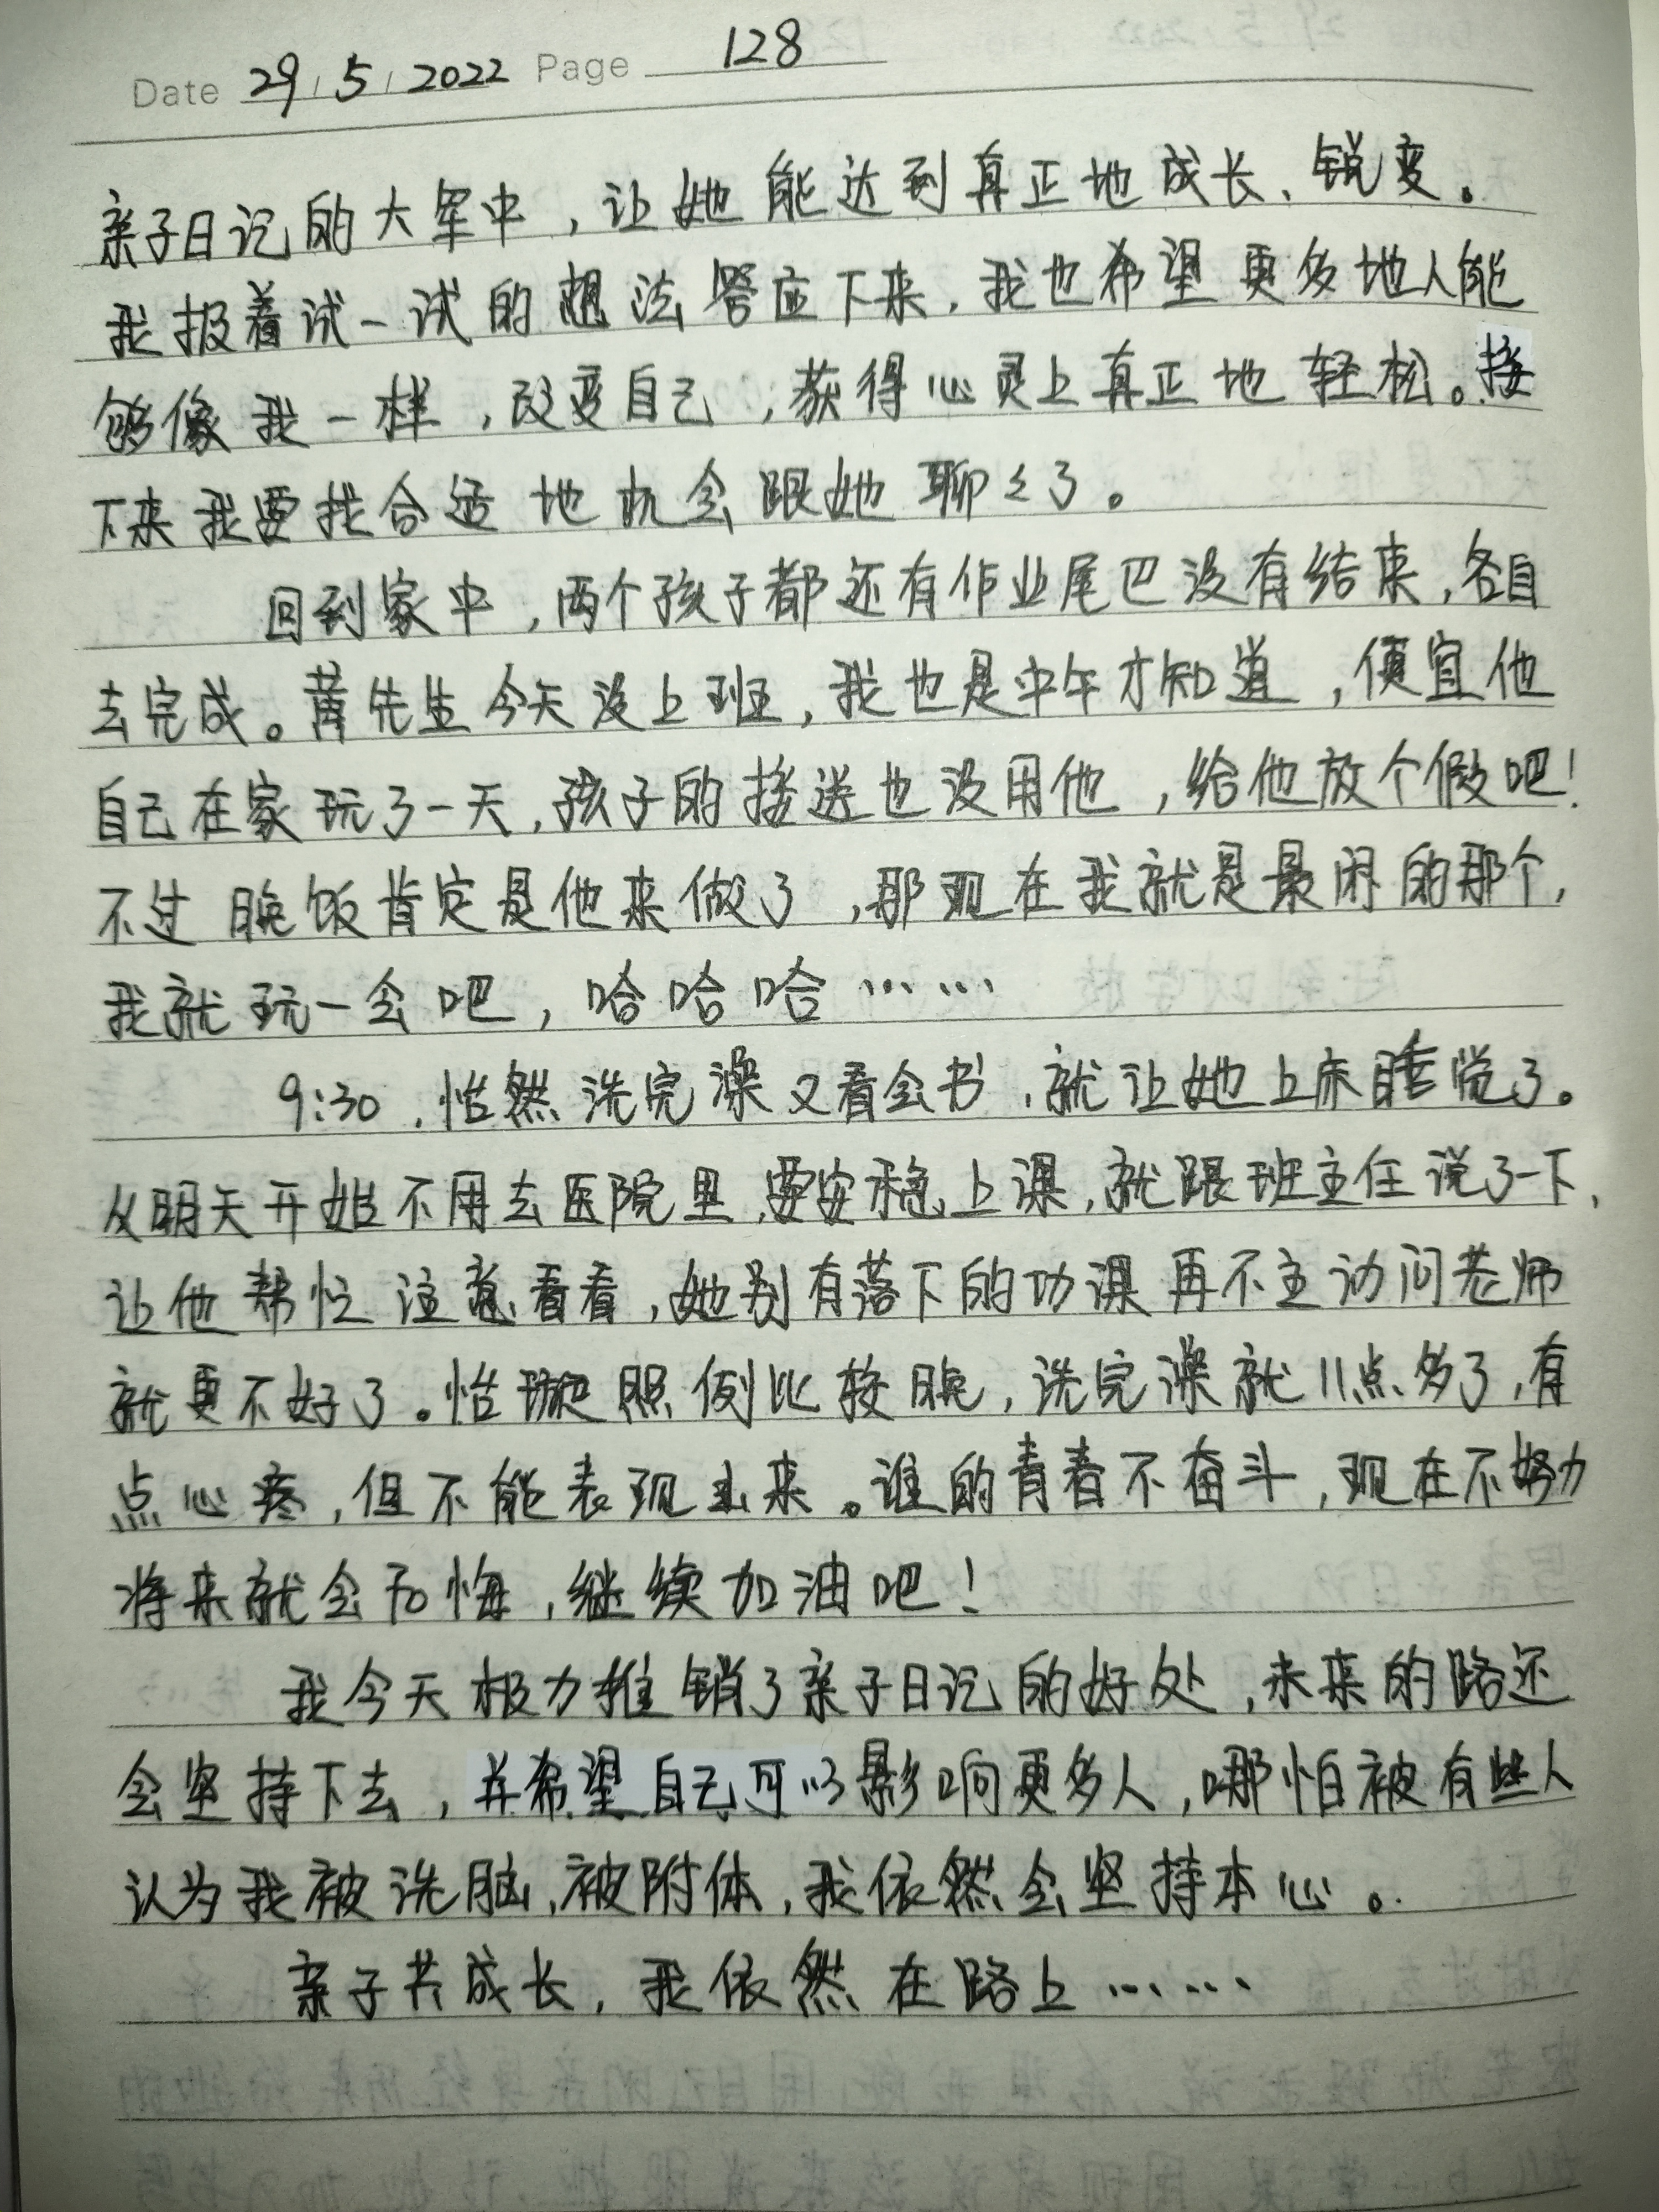 Date 29 / 5 / 2022 Page 128
亲子日记的大军中，让她能达到真正地成长、锐变。
我报着试一试的想法答应下来，我也希望更多地人能
够像我一样，改变自己，获得心灵上真正地轻松。接
下来我要找合适地机会跟她聊々了。
回到家中，两个孩子都还有作业尾巴没有结束，各自
去完成。黄先生今天没上班，我也是中午才知道，便宜他
自己在家玩了一天，孩子的接送也没用他，给他放个假吧！
不过晚饭肯定是他来做了，那现在我就是最闲的那个，
我就玩一会吧，哈哈哈……
9:30，怡然洗完澡又看会书，就让她上床睡觉了。
从明天开始不用去医院里，要安稳上课，就跟班主任说了一下，
让他帮忙注意看看，她别有落下的功课再不主动问老师
就更不好了。怡璇照例比较晚，洗完澡就11点多了，有
点心疼，但不能表现出来。谁的青春不奋斗，现在不努力
将来就会后悔，继续加油吧！
我今天极力推销了亲子日记的好处，未来的路还
会坚持下去，并希望自己可以影响更多人，哪怕被有些人
认为我被洗脑，被附体，我依然会坚持本心。
亲子共成长，我依然在路上……